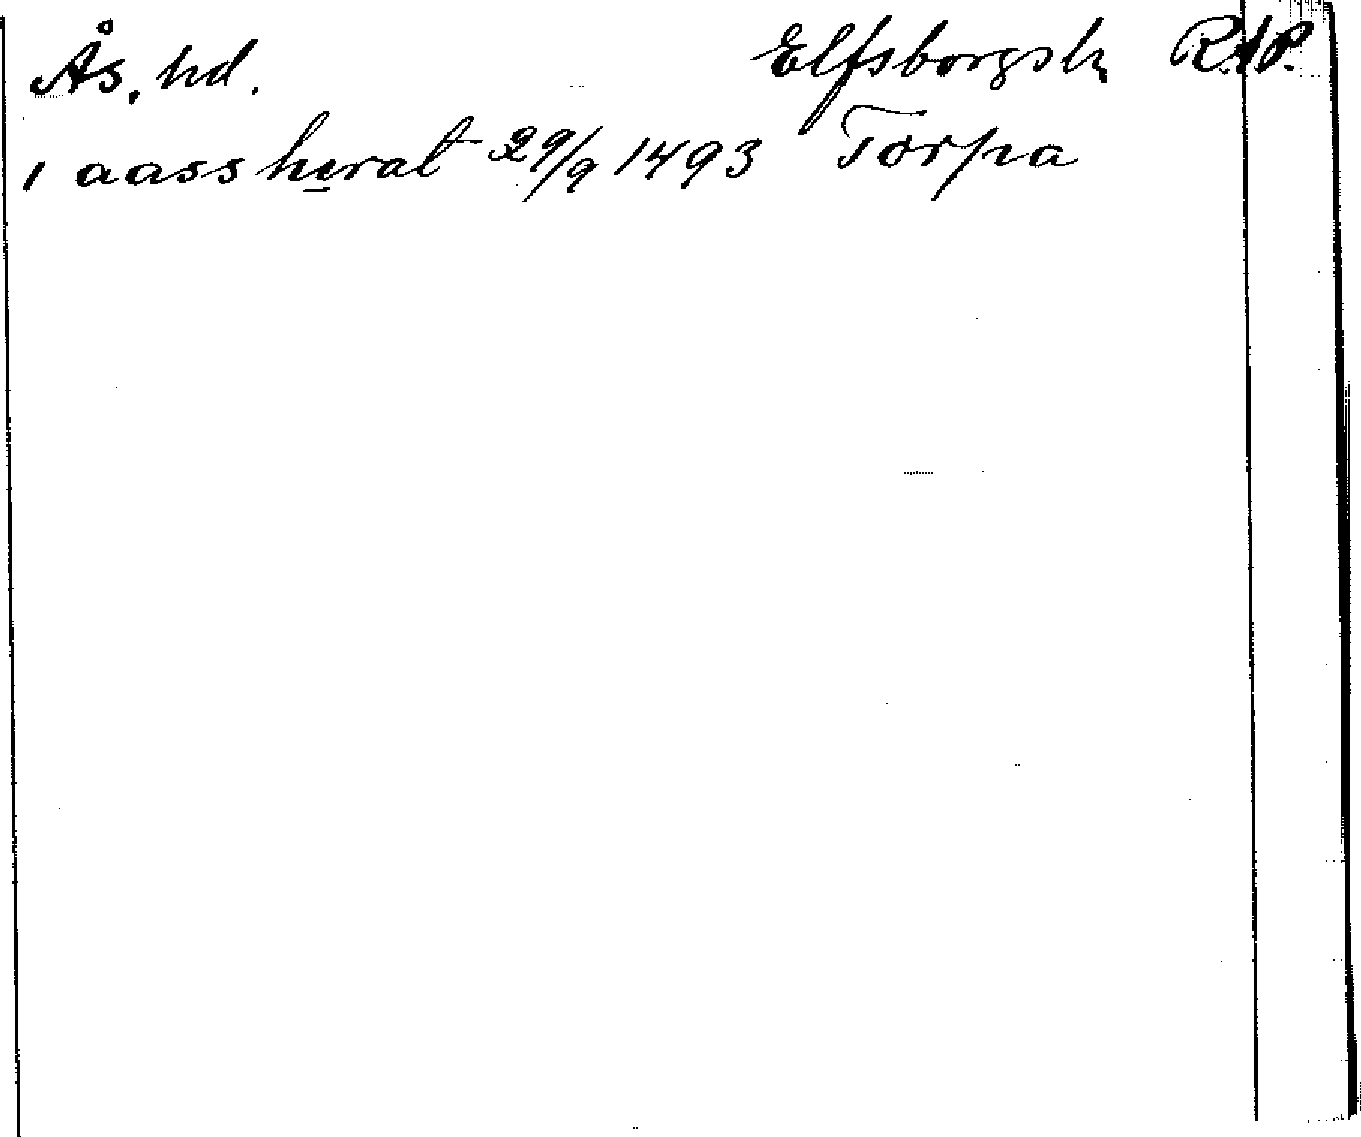 Ås, hd. Elfsborgsl. R.A.P.
ı aasshųrat 29/9 1493 Torpa